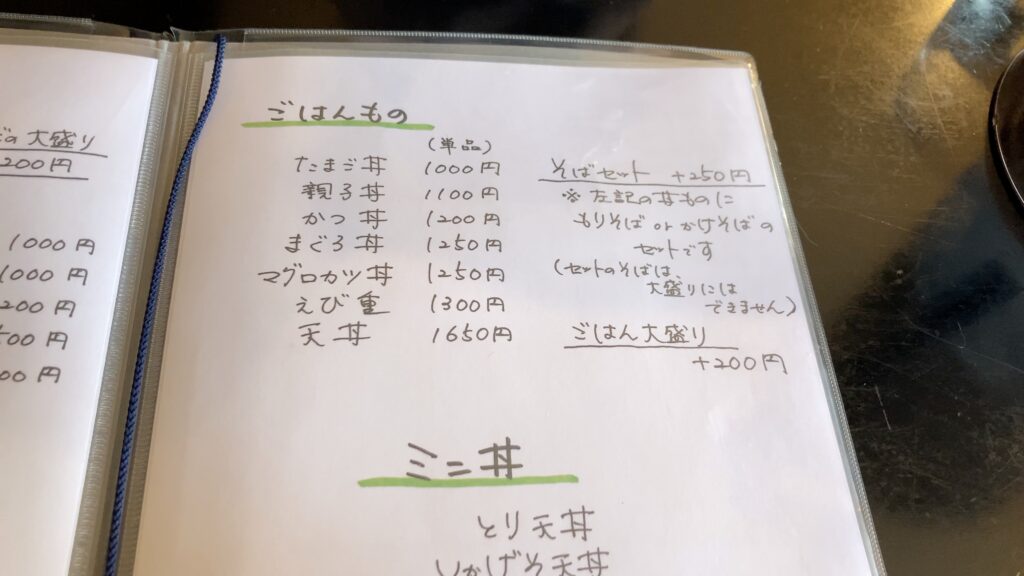 の大盛り
200円
1000円
1000円
200円
00円
00円
ごはんもの
(単品)
たまご丼 1000円
親子丼 1100円
かつ丼 1200円
まぐろ丼 1250円
マグロカツ丼 1250円
えび重 1300円
天丼 1650円
そばセット +250円
※左記の丼ものに
もりそば or かけそばの
セットです
(セットのそばは、
大盛りには
できません)
ごはん大盛り
+200円
ミニ丼
とり天丼
いかげそ天丼